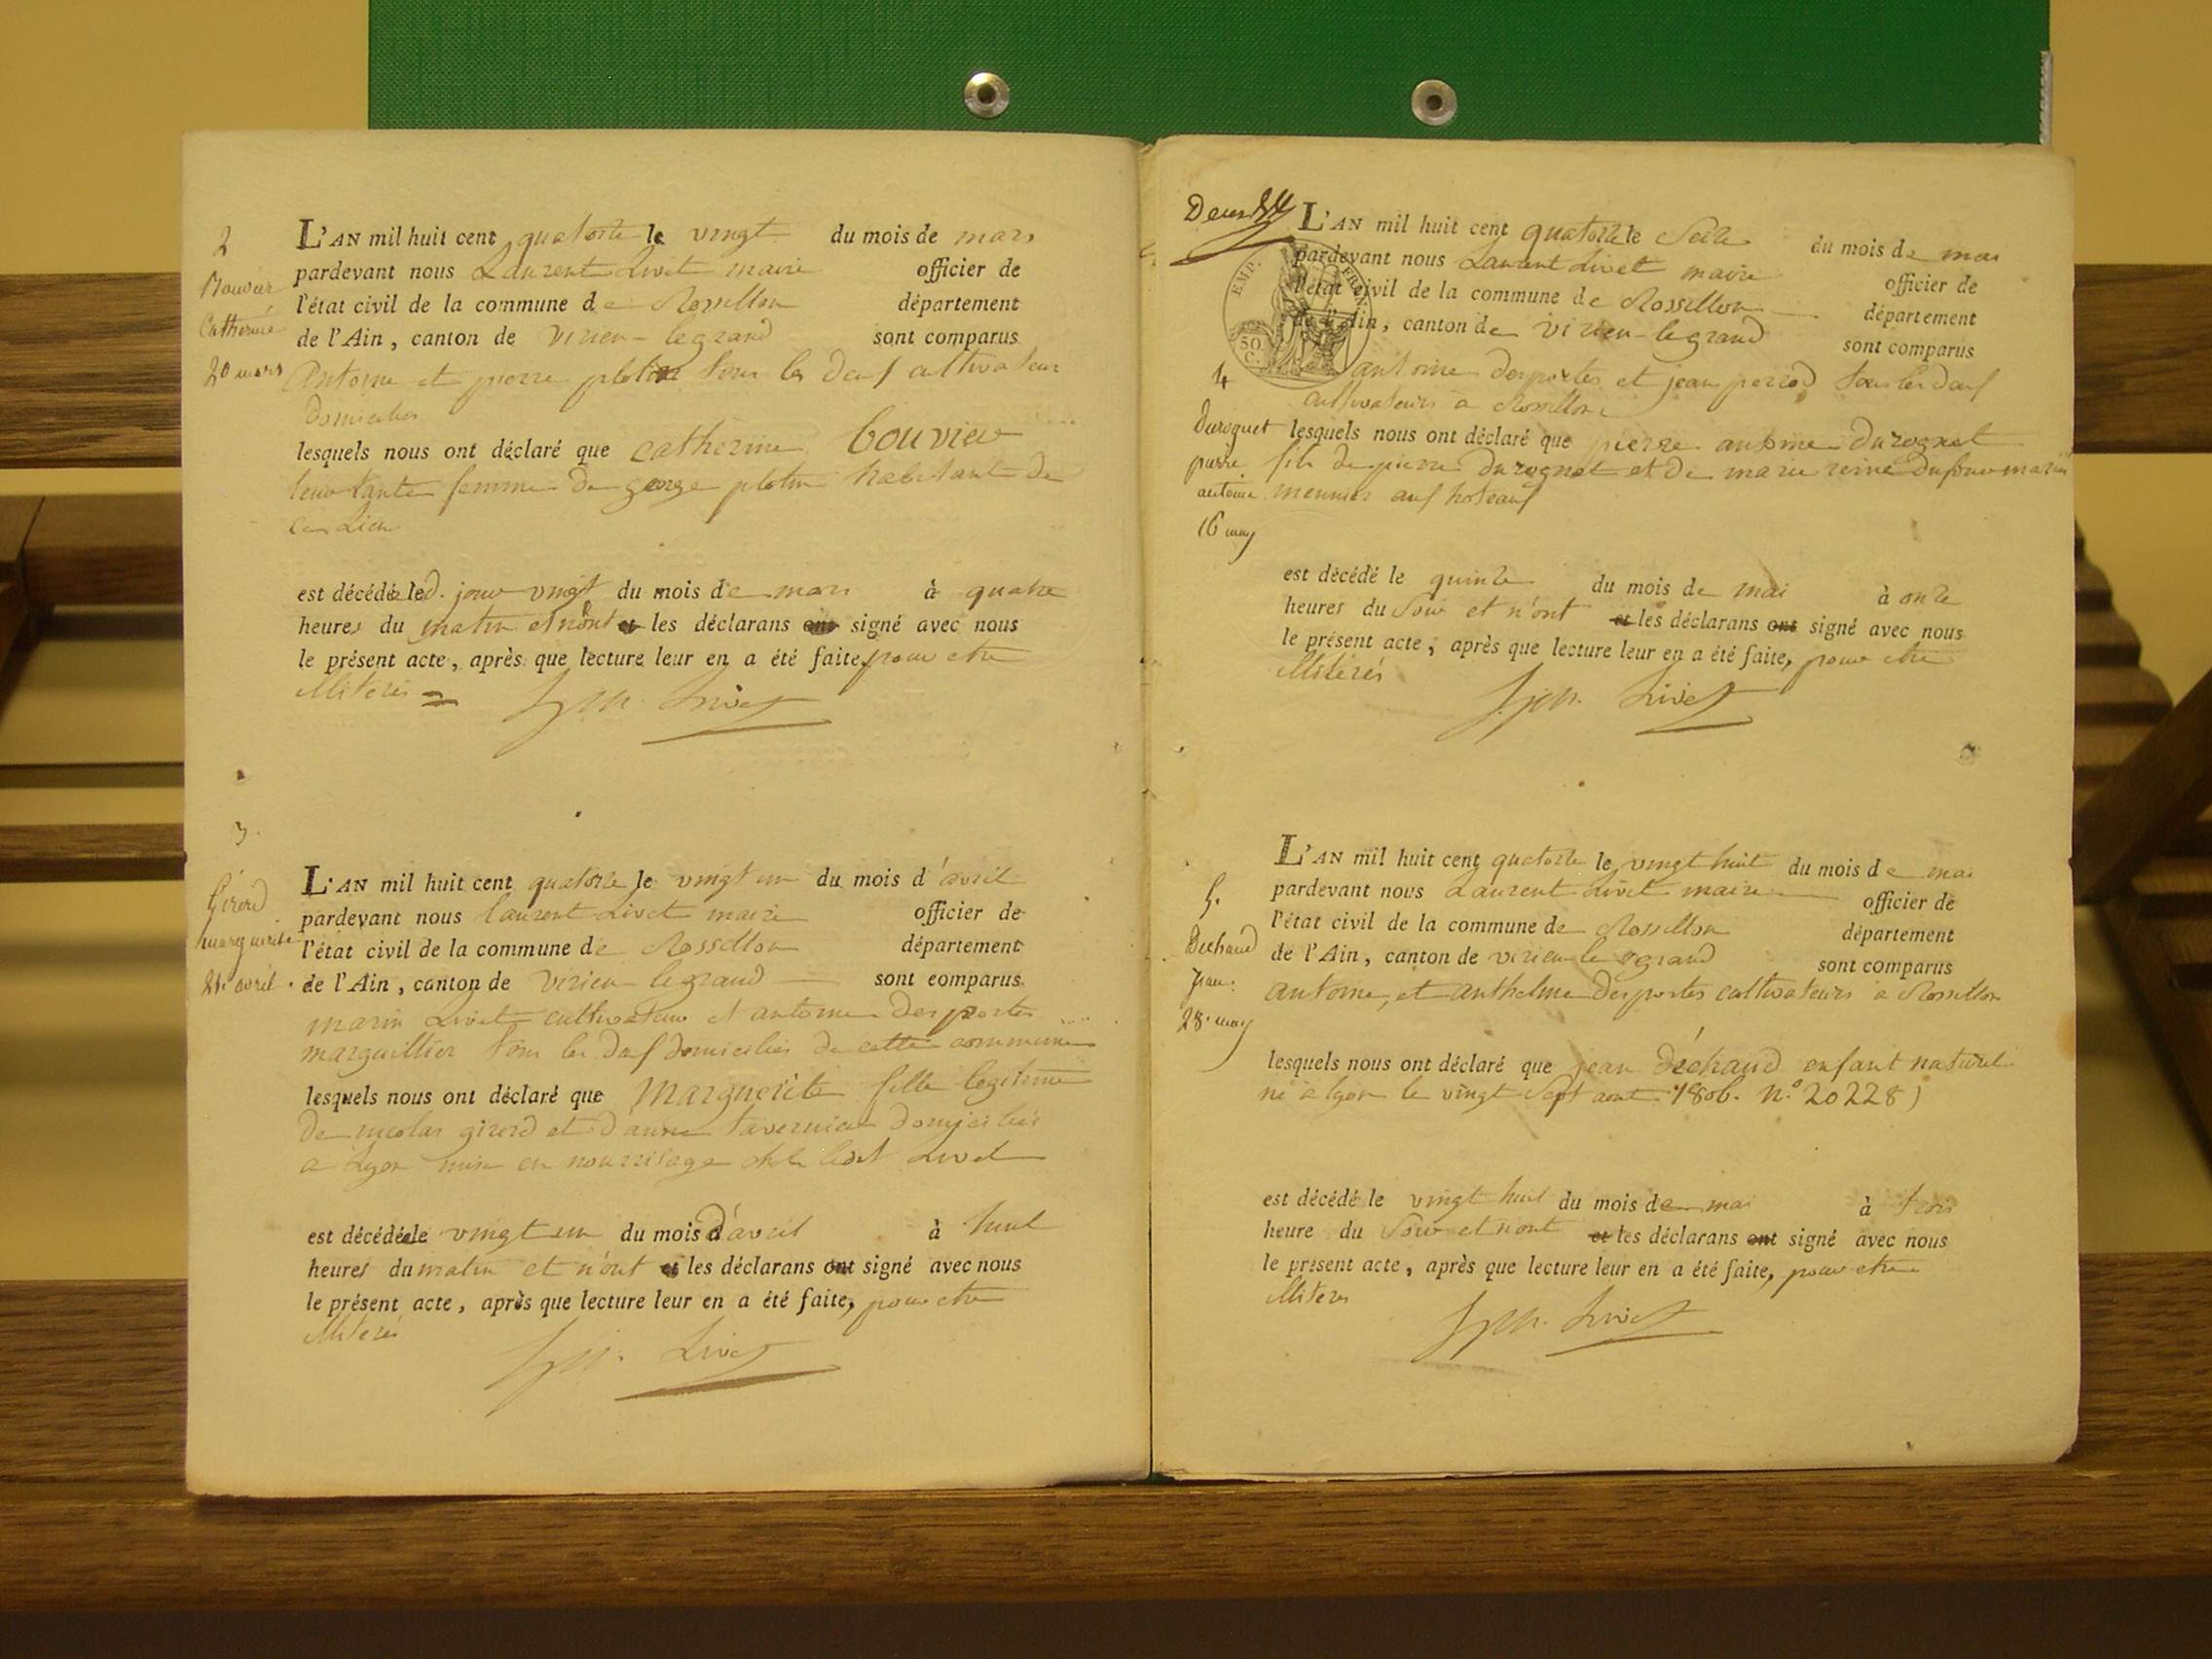 2
Bouvier
Catherine
20 mars
L'AN mil huit cent quatorze le vingt du mois de mars
pardevant nous Laurent Livet maire officier de
l'état civil de la commune de Rossillon département
de l'Ain, canton de virieu-legrand sont comparus
Antoine et pierre plotin tous les deux cultivateurs
domiciliés
lesquels nous ont déclaré que catherine bouvier
leur tante femme de george plotin habitante de
ce Lieu
est décédée led. jour vingt du mois de mars à quatre
heures du matin et n'ont et les déclarans ont signé avec nous
le présent acte, après que lecture leur en a été faite, pour etre
illiterés = Livet
3
Girerd
marguerite
21 avril
L'AN mil huit cent quatorze le vingt un du mois d'avril
pardevant nous laurent Livet maire officier de
l'état civil de la commune de Rossillon département
de l'Ain, canton de Virieu-legrand sont comparus
marin Livet cultivateur et antoine Desportes
marguillier tous les deux domiciliés de cette commune
lesquels nous ont déclaré que Marguerite fille legitime
De nicolas girerd et d'anne tavernier domiciliés
a Lyon mise en nourrisage chez ledit Livet
est décédée le vingt un du mois d'avril à huit
heures du matin et n'ont et les déclarans ont signé avec nous
le présent acte, après que lecture leur en a été faite, pour etre
illiterés
Livet
EMP. FRAN.
50 C.
L'AN mil huit cent quatorze le Seize du mois de mai
pardevant nous Laurent Livet maire officier de
l'état civil de la commune de Rossillon département
de l'Ain, canton de virieu-legrand sont comparus
4
antoine desportes et jean perrod tous les deux
cultivateurs a Rossillon
Durognet
pierre
antoine
16 may
lesquels nous ont déclaré que pierre antoine Durognat
fils de pierre Durognat et de marie reine Dufour mariés
meunier aux hoteaux
est décédé le quinze du mois de mai à onze
heures du Soir et n'ont et les déclarans ont signé avec nous
le présent acte, après que lecture leur en a été faite, pour etre
illiterés
Livet
5.
Dechaud
Jean
28 may
L'AN mil huit cent quatorze le vingt huit du mois de mai
pardevant nous Laurent Livet maire officier de
l'état civil de la commune de Rossillon département
de l'Ain, canton de virieu-le grand sont comparus
antoine, et anthelme Desportes cultivateurs a Rossillon
lesquels nous ont déclaré que jean déchaud enfant naturel
né a lyon le vingt Sept aout 1806. n.° 20228)
est décédé le vingt huit du mois de mai à trois
heure du Soir et n'ont et les déclarans ont signé avec nous
le présent acte, après que lecture leur en a été faite, pour etre
illiterés
Livet